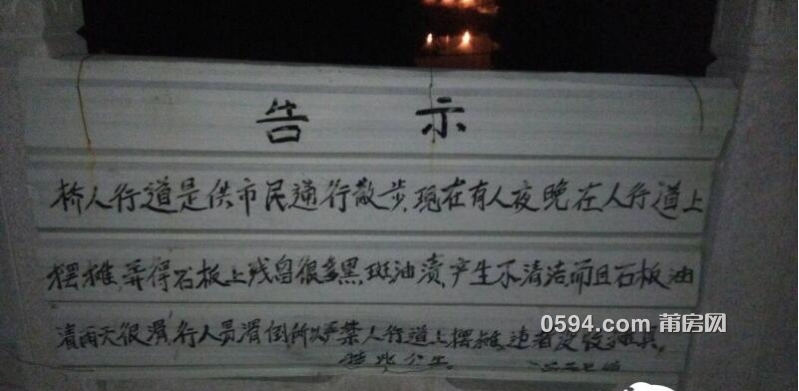 告 示
桥人行道是供市民通行散步,现在有人夜晚在人行道上
摆摊,弄得石板上残留很多黑斑油渍,产生不清洁而且石板油
渍雨天很滑行人易滑倒所以严禁人行道上摆摊,违者没收
特此公告
0594.com 莆房网